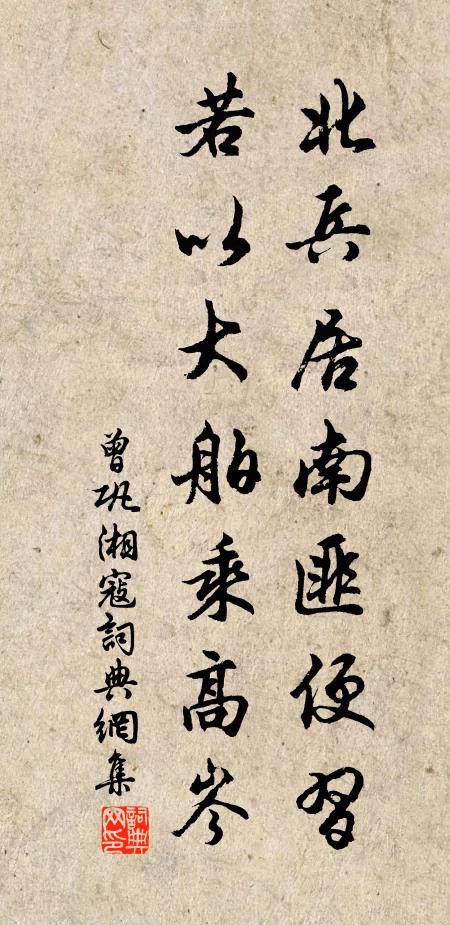 北兵居南匪便習
若以大舶乘高岑
曾巩湘寇詞典網集
詞典網印